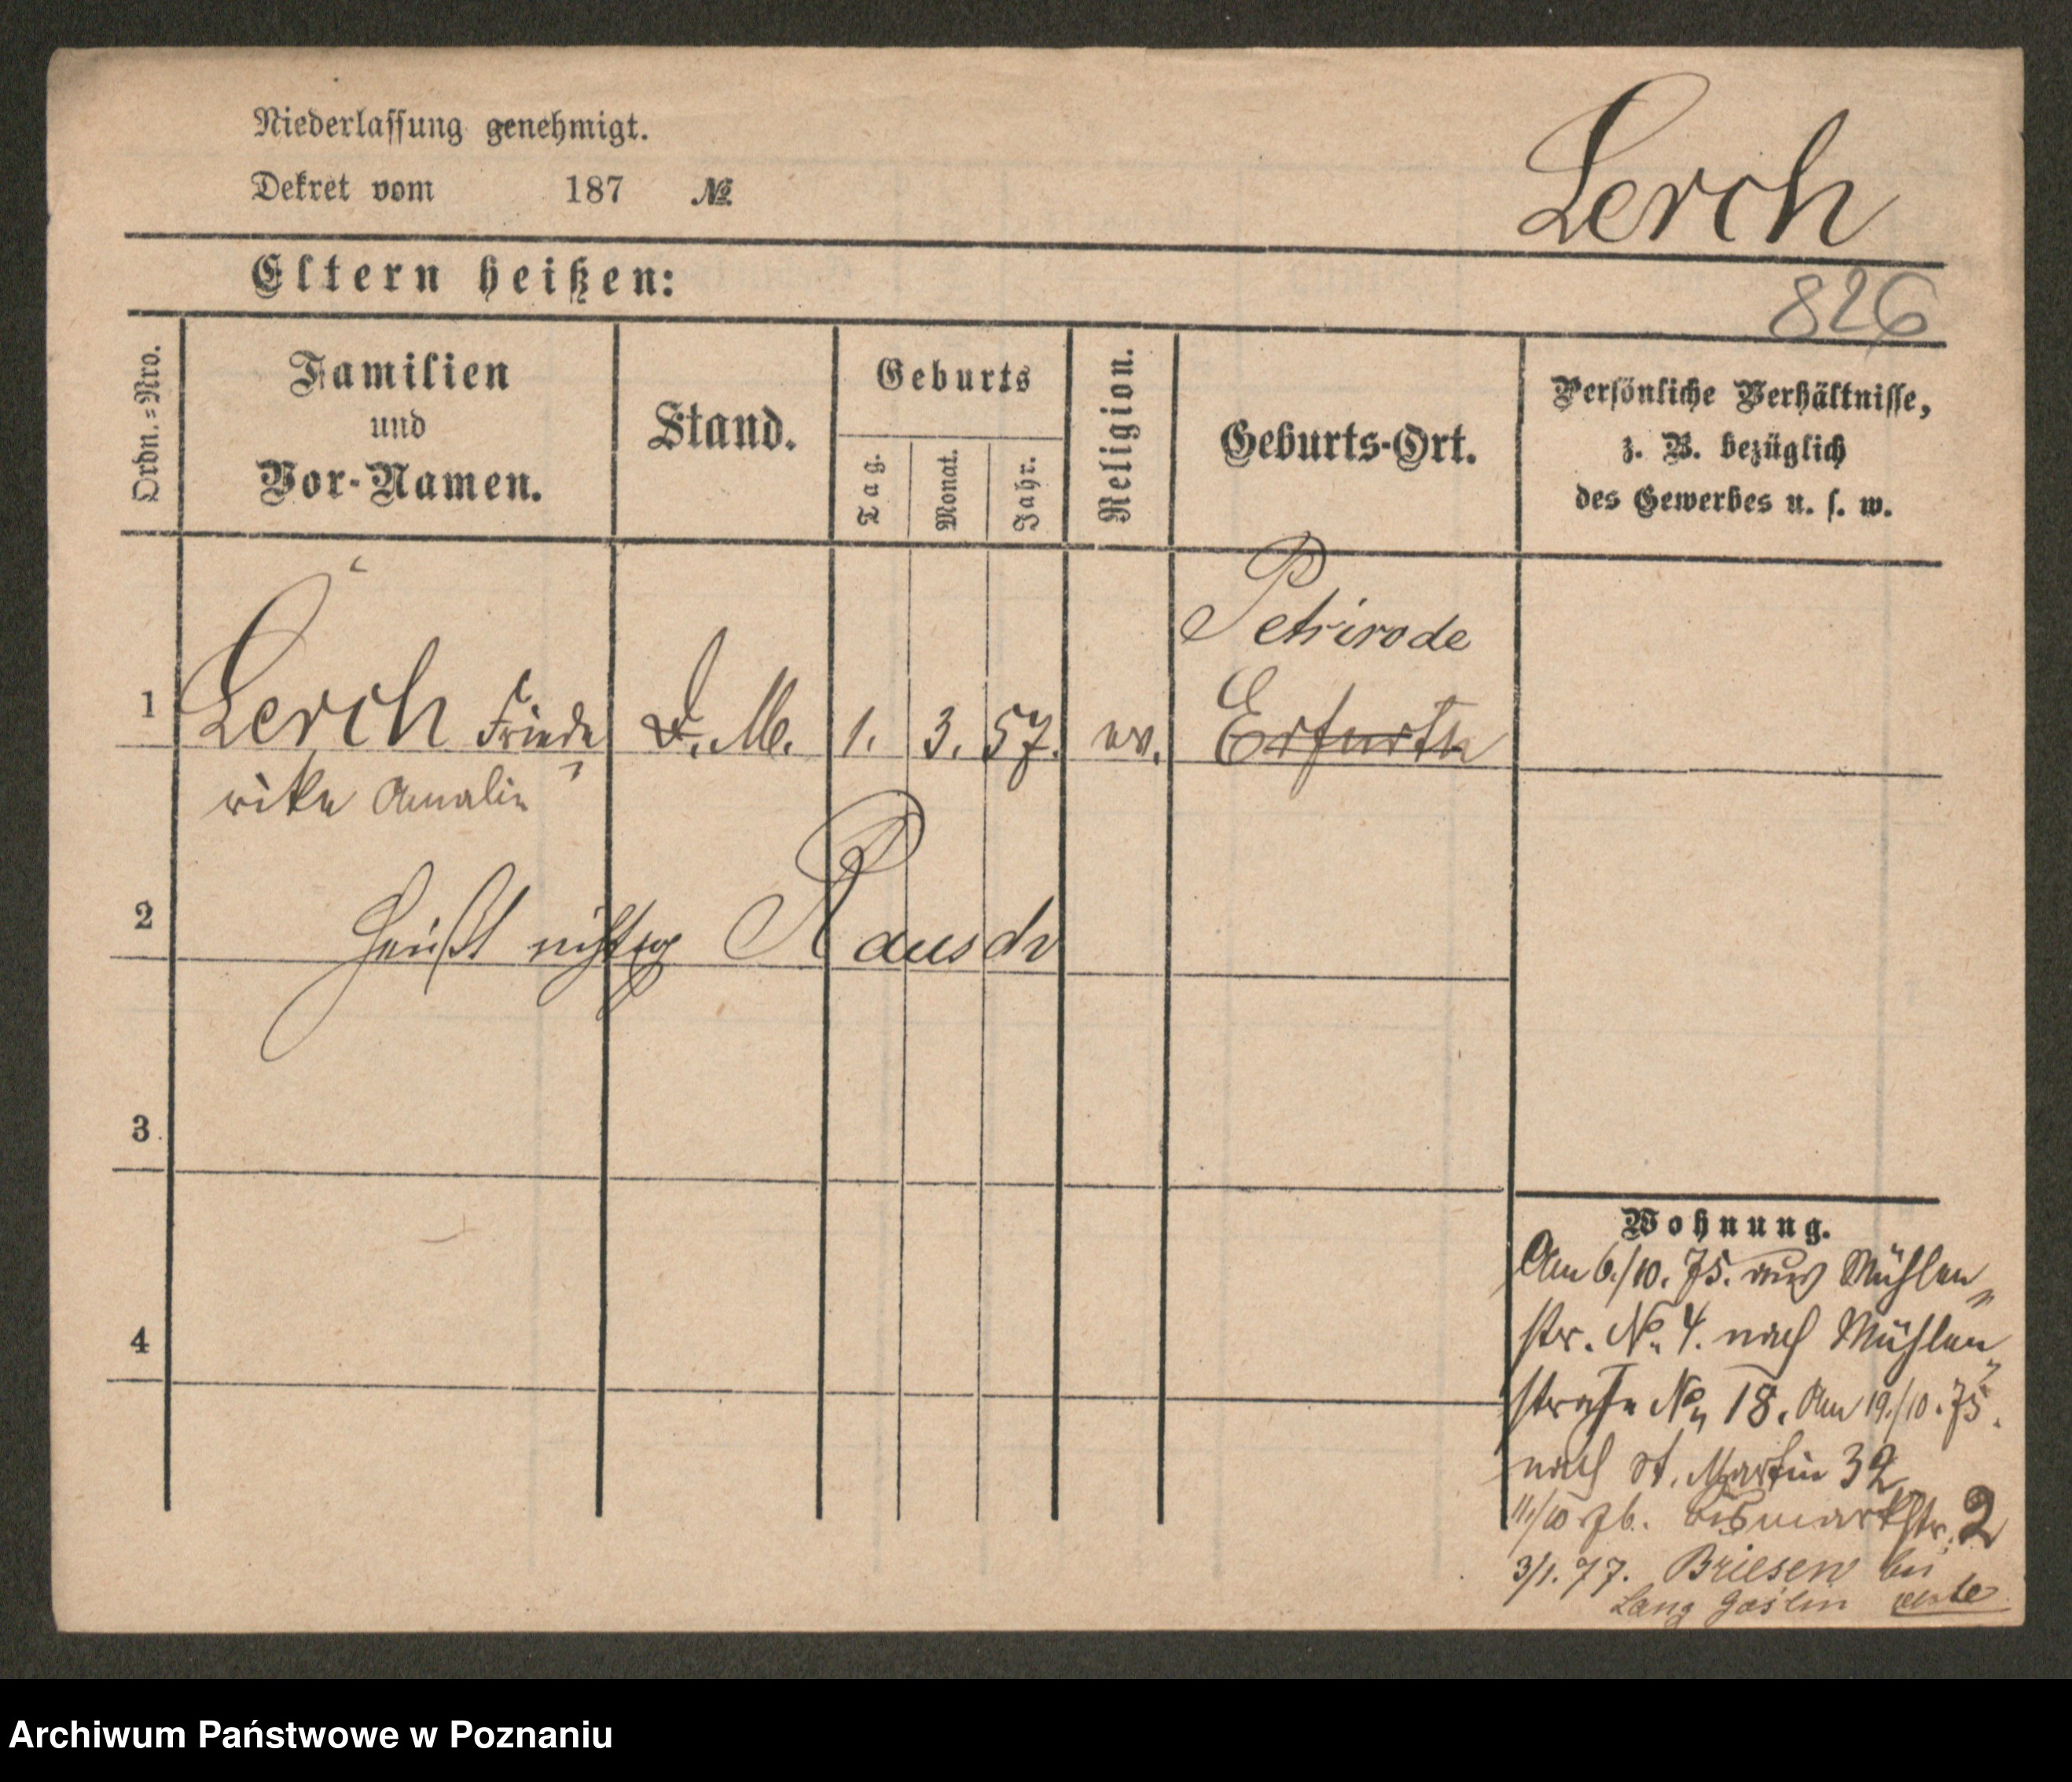 Niederlassung genehmigt.
Dekret vom 187 №
Lerch
Eltern heißen:
826
Ordn.=Nro.
Familien
und
Vor-Namen.
Stand.
Geburts
Tag.
Monat.
Jahr.
Religion.
Geburts-Ort.
Persönliche Verhältnisse,
z. B. bezüglich
des Gewerbes u. s. w.
Petrirode
1 Lerch Friede D. M. 1. 3. 57. ev. Erfurth
rike Amalie
2 heißt richtig Rausch
3
4
Wohnung.
Am 6./10. 75. aus Mühlen„
str. No. 4. nach Mühlen„
straße No. 18. Am 19./10. 75.
nach St. Martin 32
11/10 76. Bismarkstr. 2
3/1. 77. Briesen bei
Lang Goslin